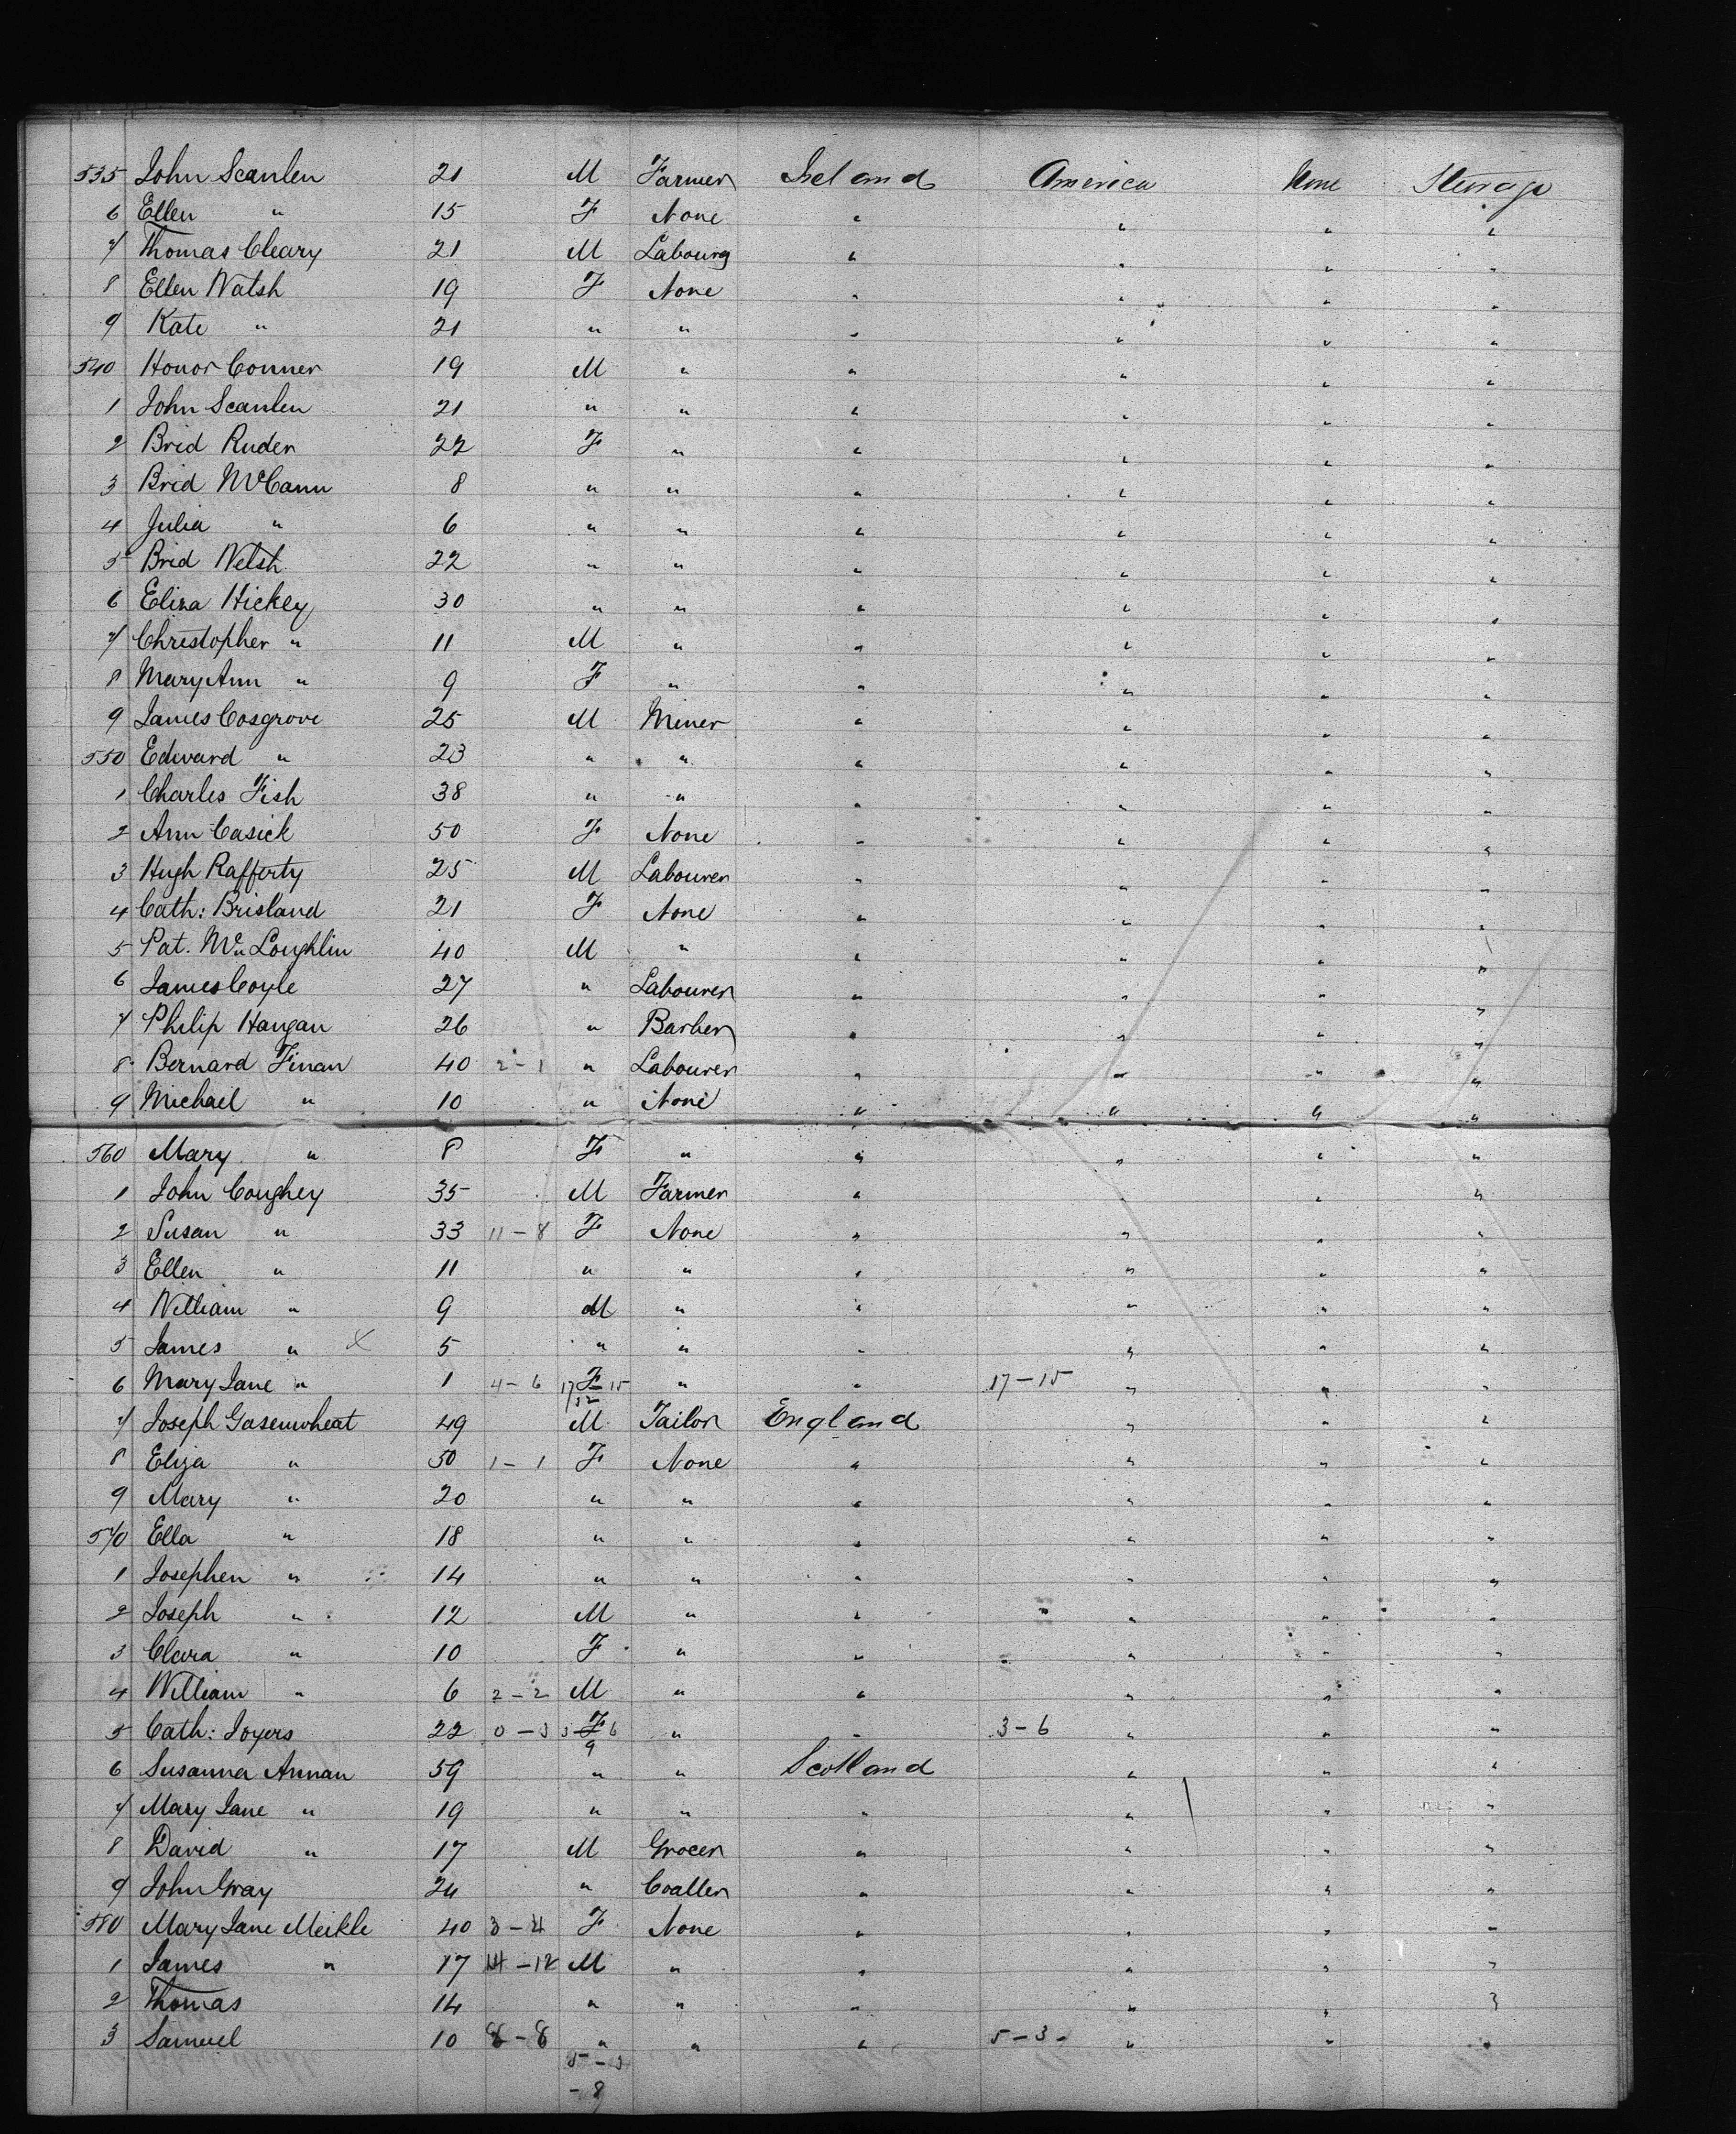 535 John Scanlen 21 M Farmer Ireland America None Steerage
6 Ellen " 15 F None " " " "
7 Thomas Cleary 21 M Labourer " " " "
8 Ellen Walsh 19 F None " " " "
9 Kate " 21 " " " " " "
540 Honor Conner 19 M " " " " "
1 John Scanlen 21 " " " " " "
2 Brid Ruder 22 F " " " " "
3 Brid McCann 8 " " " " " "
4 Julia " 6 " " " " " "
5 Brid Welsh 22 " " " " " "
6 Eliza Hickey 30 " " " " " "
7 Christopher " 11 M " " " " "
8 Mary Ann " 9 F " " " " "
9 James Cosgrove 25 M Miner " " " "
550 Edward " 23 " " " " " "
1 Charles Fish 38 " " " " " "
2 Ann Casick 50 F None " " " "
3 Hugh Rafferty 25 M Labourer " " " "
4 Cath: Brisland 21 F None " " " "
5 Pat. Mc Loughlin 40 M " " " " "
6 James Coyle 27 " Labourer " " " "
7 Philip Haugan 26 " Barber " " " "
8 Bernard Finan 40 2-1 " Labourer " " " "
9 Michael " 10 " None " " " "
560 Mary " 8 F " " " " "
1 John Coughey 35 M Farmer " " " "
2 Susan " 33 11-8 F None " " " "
3 Ellen " 11 " " " " " "
4 William " 9 M " " " " "
5 James " x 5 " " " " " "
6 Mary Jane " 1 4-6 17 F 15 " " 17-15 " " "
32
7 Joseph Gasenwheat 49 M Tailor England " " "
8 Eliza " 50 1-1 F None " " " "
9 Mary " 20 " " " " " "
570 Ella " 18 " " " " " "
1 Josephen " 14 " " " " " "
2 Joseph " 12 M " " " " "
3 Clara " 10 F " " " " "
4 William " 6 2-2 M " " " " "
5 Cath: Joyers 22 0-3 3 F 6 " " 3-6 " " "
9
6 Susanna Annan 59 " " Scotland " " "
7 Mary Jane " 19 " " " " " "
8 David " 17 M Grocer " " " "
9 John Gray 24 " Coaller " " " "
580 Mary Jane Meikle 40 3-4 F None " " " "
1 James " 17 14-12 M " " " " "
2 Thomas 14 " " " " " "
3 Samuel 10 8-8 " " " 5-3 " " "
5-3
-8